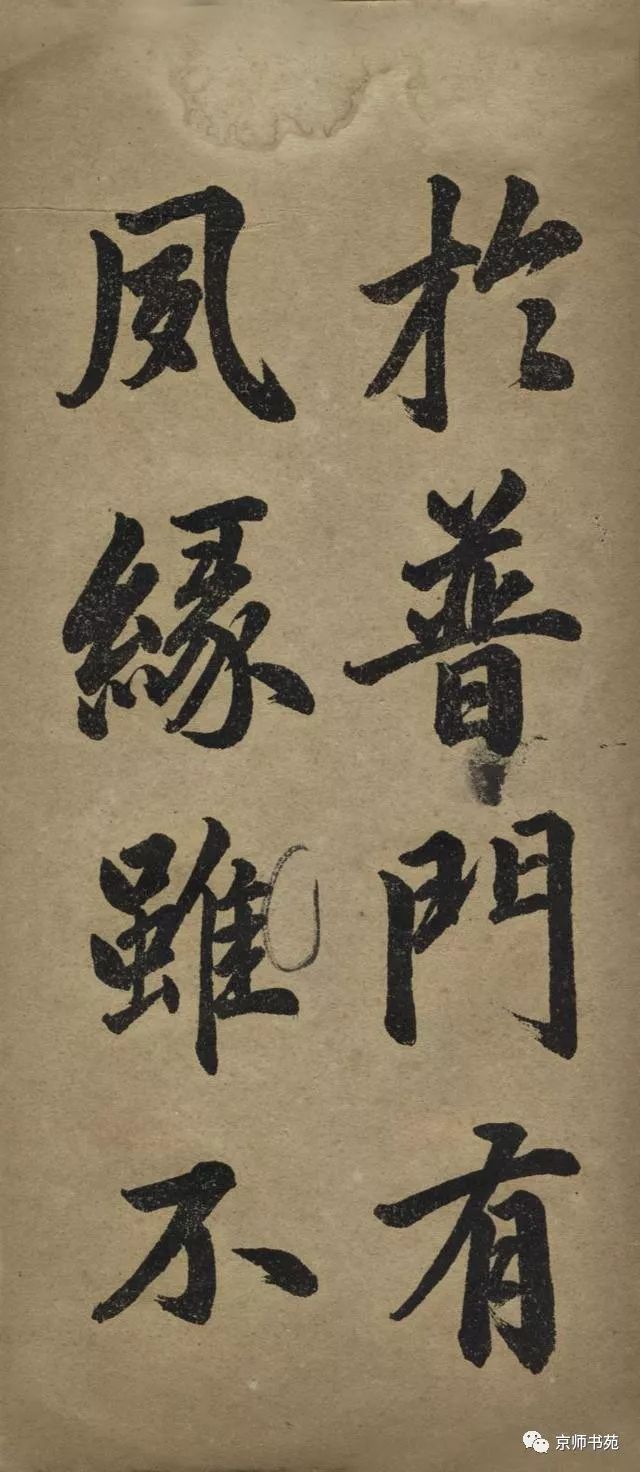 於普門有
夙緣雖不
京师书苑